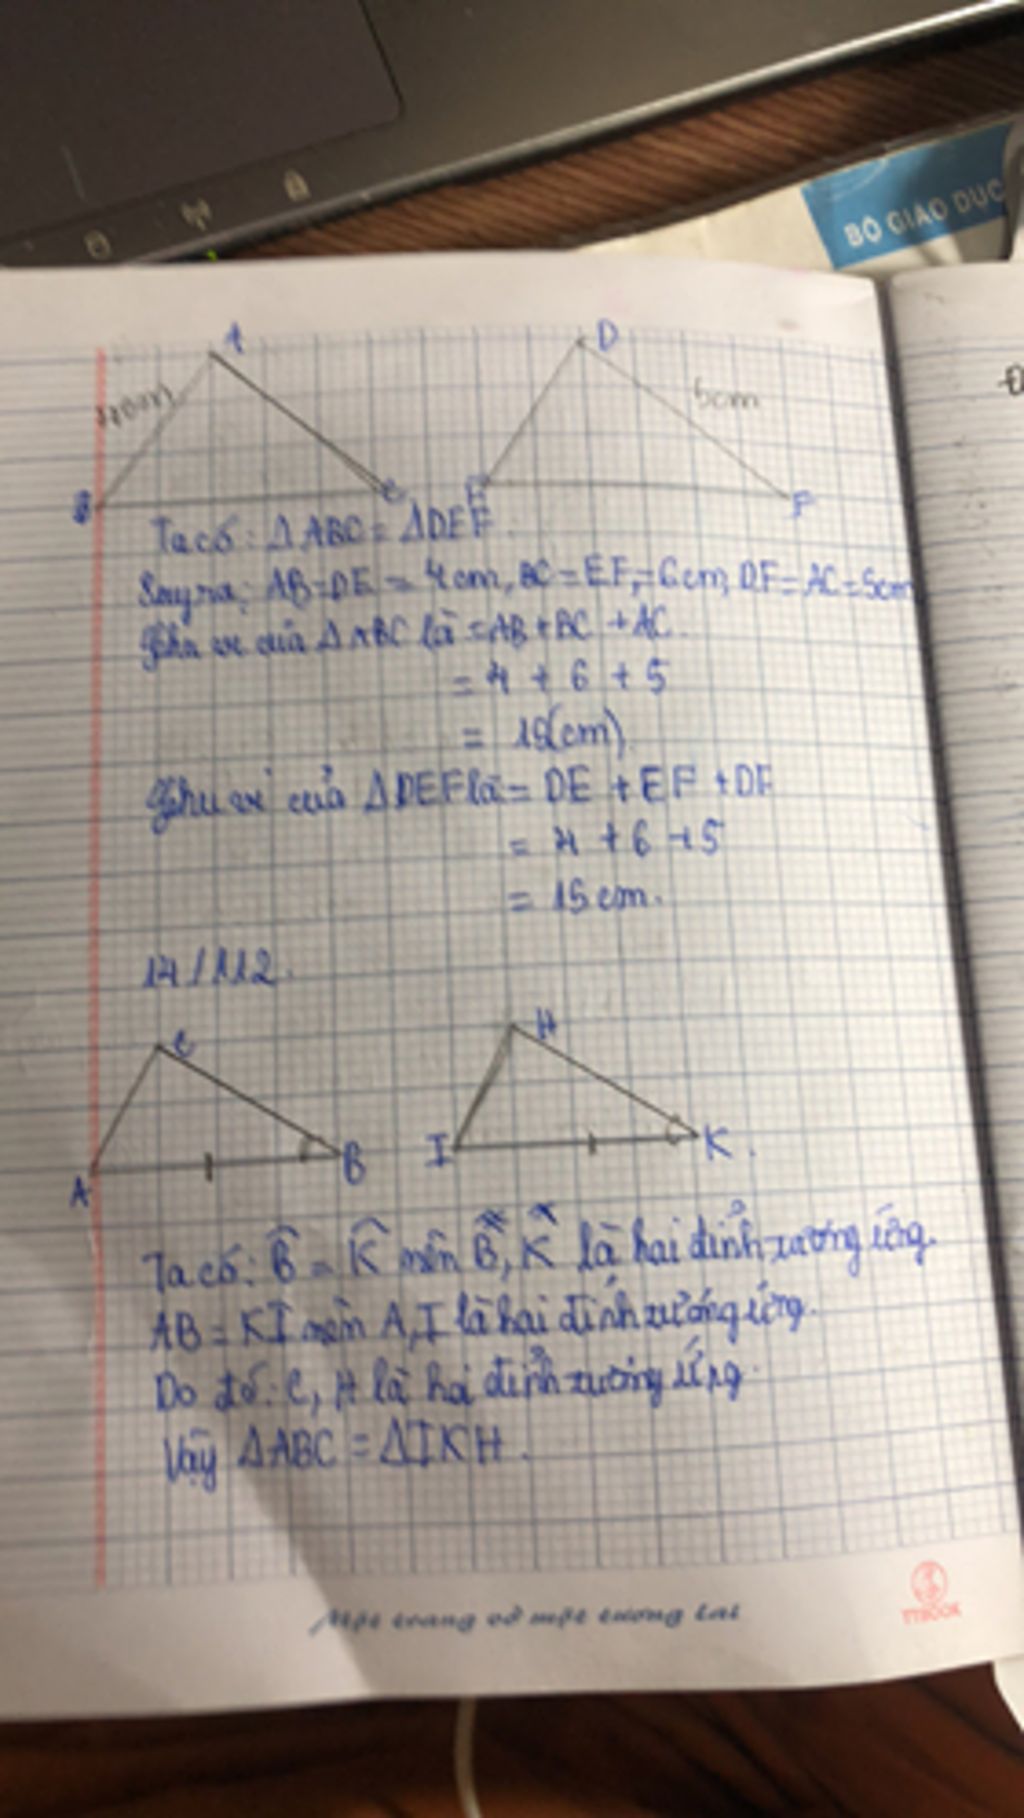 BỘ GIÁO DỤC
A
D
4cm
5cm
B
C
E
F
Ta có: ΔABC = ΔDEF.
Suy ra: AB=DE = 4cm, BC = EF = 6cm, DF = AC = 5cm
Chu vi của ΔABC là = AB + BC + AC.
= 4 + 6 + 5
= 15(cm)
Chu vi của ΔDEF là = DE + EF + DF
= 4 + 6 + 5
= 15cm.
14/112.
C
H
A
B
I
K.
Ta có: B̂ = K̂ nên B, K là hai đỉnh tương ứng.
AB = KI nên A, I là hai đỉnh tương ứng.
Do đó: C, H là hai đỉnh tương ứng.
Vậy ΔABC = ΔIKH.
Một trang vở một tương lai
TTBOOK